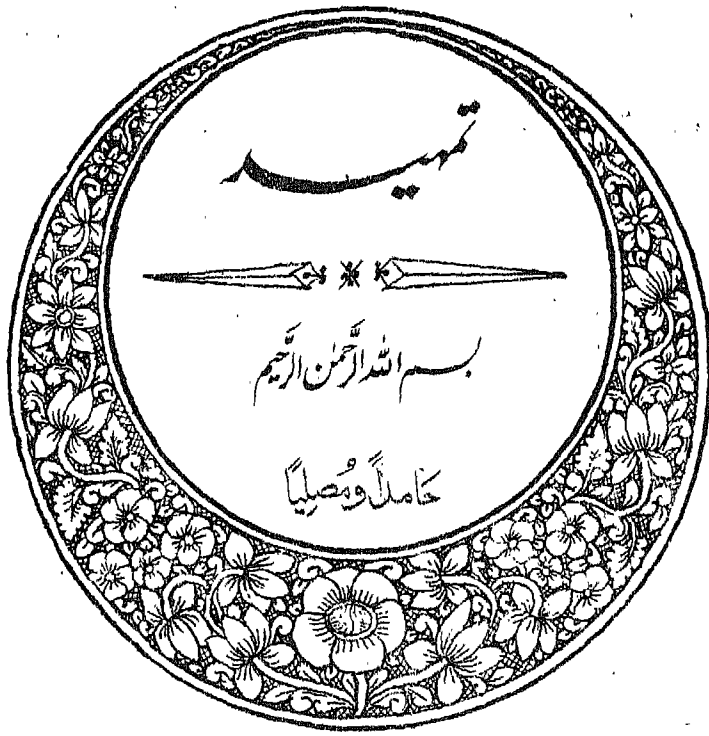 تمہید
بسم اللہ الرَّحمٰن الرَّحیم
حَامداً ومُصلیاً